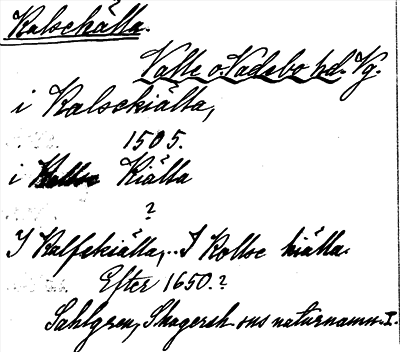 Kalsekälla.
Valle o. Vadsbo hd. Vg.
i Kalsekiälla,
1505.
i Kiälla
?
I Kalfekiälla,.. I Kollse kiälla.
Efter 1650.?
Sahlgren, Skagersh. sns naturnamn. I.